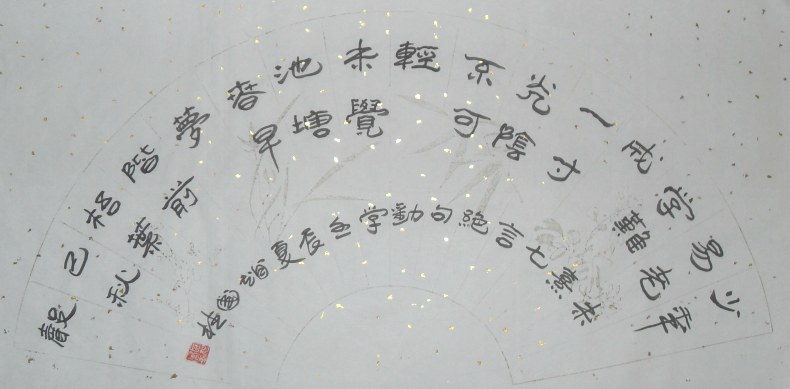 少年易老学難成
一寸光陰不可輕
未覺池塘春草夢
階前梧葉已秋聲
朱熹七言絶句勸学壬辰夏